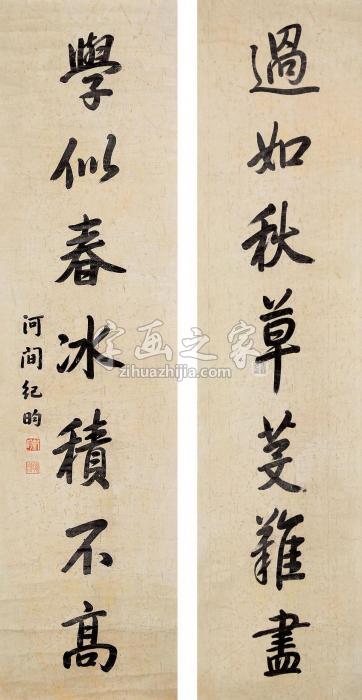 過如秋草芟難盡
學似春冰積不高
河間紀昀
字画之家
zihuazhijia.com